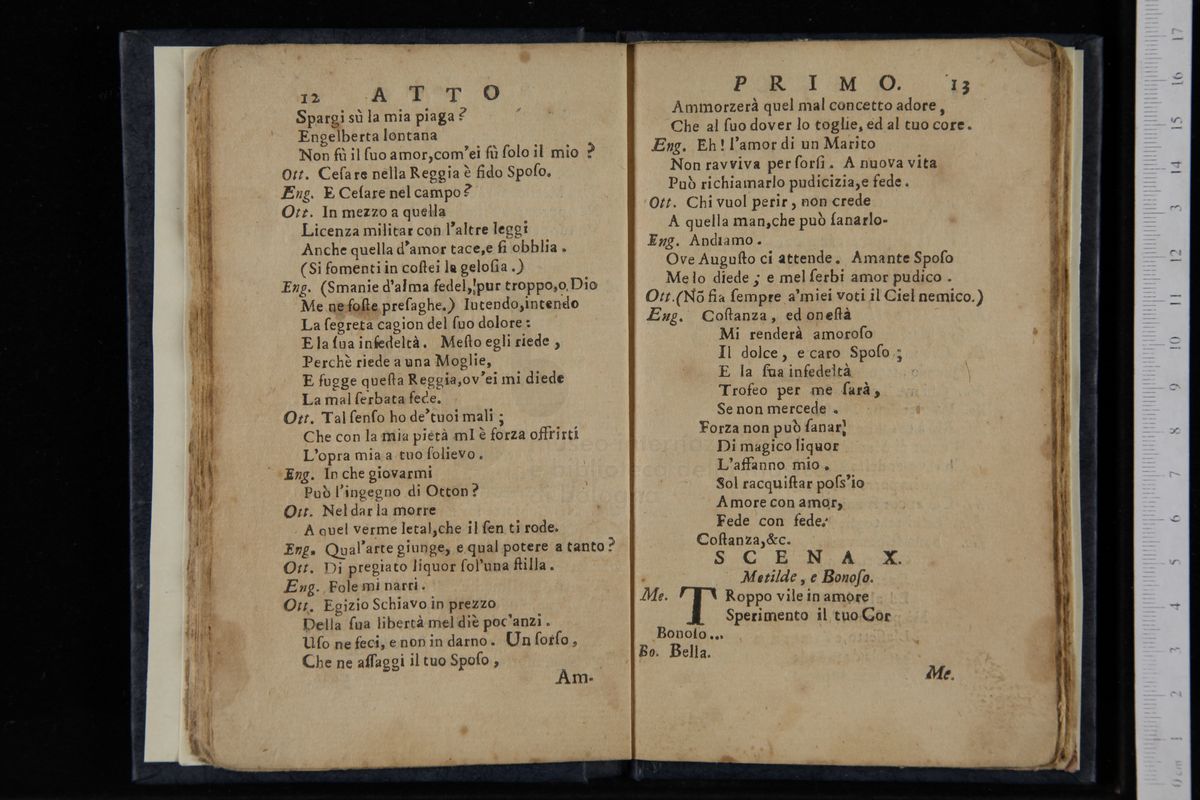 12 ATTO
Spargi sù la mia piaga?
Engelberta lontana
Non fù il ſuo amor,com'ei fù ſolo il mio ?
Ott. Ceſare nella Reggia è fido Spoſo.
Eng. E Ceſare nel campo?
Ott. In mezzo a quella
Licenza militar con l'altre leggi
Anche quella d'amor tace,e ſi obblia .
(Si fomenti in coſtei la geloſia .)
Eng. (Smanie d'alma fedel,!pur troppo,o Dio
Me ne foſte preſaghe.) Iutendo,intendo
La ſegreta cagion del ſuo dolore :
E la ſua infedeltà. Meſto egli riede ,
Perchè riede a una Moglie,
E fugge queſta Reggia,ov'ei mi diede
La mal ſerbata fede.
Ott. Tal ſenſo ho de'tuoi mali ;
Che con la mia pietà mI è forza offrirti
L'opra mia a tuo ſolievo .
Eng. In che giovarmi
Può l'ingegno di Otton ?
Ott. Nel dar la morre
A quel verme letal,che il ſen ti rode.
Eng. Qual'arte giunge, e qual potere a tanto?
Ott. Di pregiato liquor ſol'una ſtilla .
Eng. Fole mi narri .
Ott. Egizio Schiavo in prezzo
Della ſua libertà mel diè poc'anzi .
Uſo ne feci, e non in darno . Un ſorſo ,
Che ne aſſaggi il tuo Spoſo ,
Am-
PRIMO. 13
Ammorzerà quel mal concetto adore ,
Che al ſuo dover lo toglie, ed al tuo core.
Eng. Eh ! l'amor di un Marito
Non ravviva per ſorſi . A nuova vita
Può richiamarlo pudicizia,e fede .
Ott. Chi vuol perir , non crede
A quella man,che può ſanarlo-
Eng. Andiamo .
Ove Auguſto ci attende. Amante Spoſo
Me lo diede ; e mel ſerbi amor pudico .
Ott.(Nõ ſia ſempre a'miei voti il Ciel nemico.)
Eng. Coſtanza , ed oneſtà
Mi renderà amoroſo
Il dolce , e caro Spoſo ;
E la ſua infedeltà
Trofeo per me ſarà ,
Se non mercede .
Forza non può ſanar
Di magico liquor
L'affanno mio .
Sol racquiſtar poſs'io
Amore con amor,
Fede con fede.
Coſtanza,&c.
SCENA X.
Matilde , e Bonoſo.
Me. TRoppo vile in amore
Sperimento il tuo Cor
Bonoſo...
Bo. Bella.
Me.